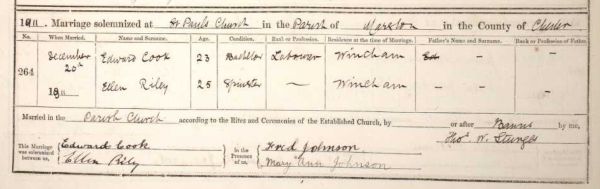 1911. Marriage solemnized at St Pauls Church in the Parish of Marston in the County of Chester
No. When Married. Name and Surname. Age. Condition. Rank or Profession. Residence at the time of Marriage. Father's Name and Surname. Rank or Profession of Father.
264 December 20th 1911 Edward Cook 23 Bachelor Labourer Wincham — —
Ellen Riley 25 Spinster — Wincham — —
Married in the Parish Church according to the Rites and Ceremonies of the Established Church, by or after Banns by me,
This Marriage was solemnized between us, Edward Cook In the Presence of us, Fred Johnson Thos. W. Sturges
Ellen Riley Mary Ann Johnson